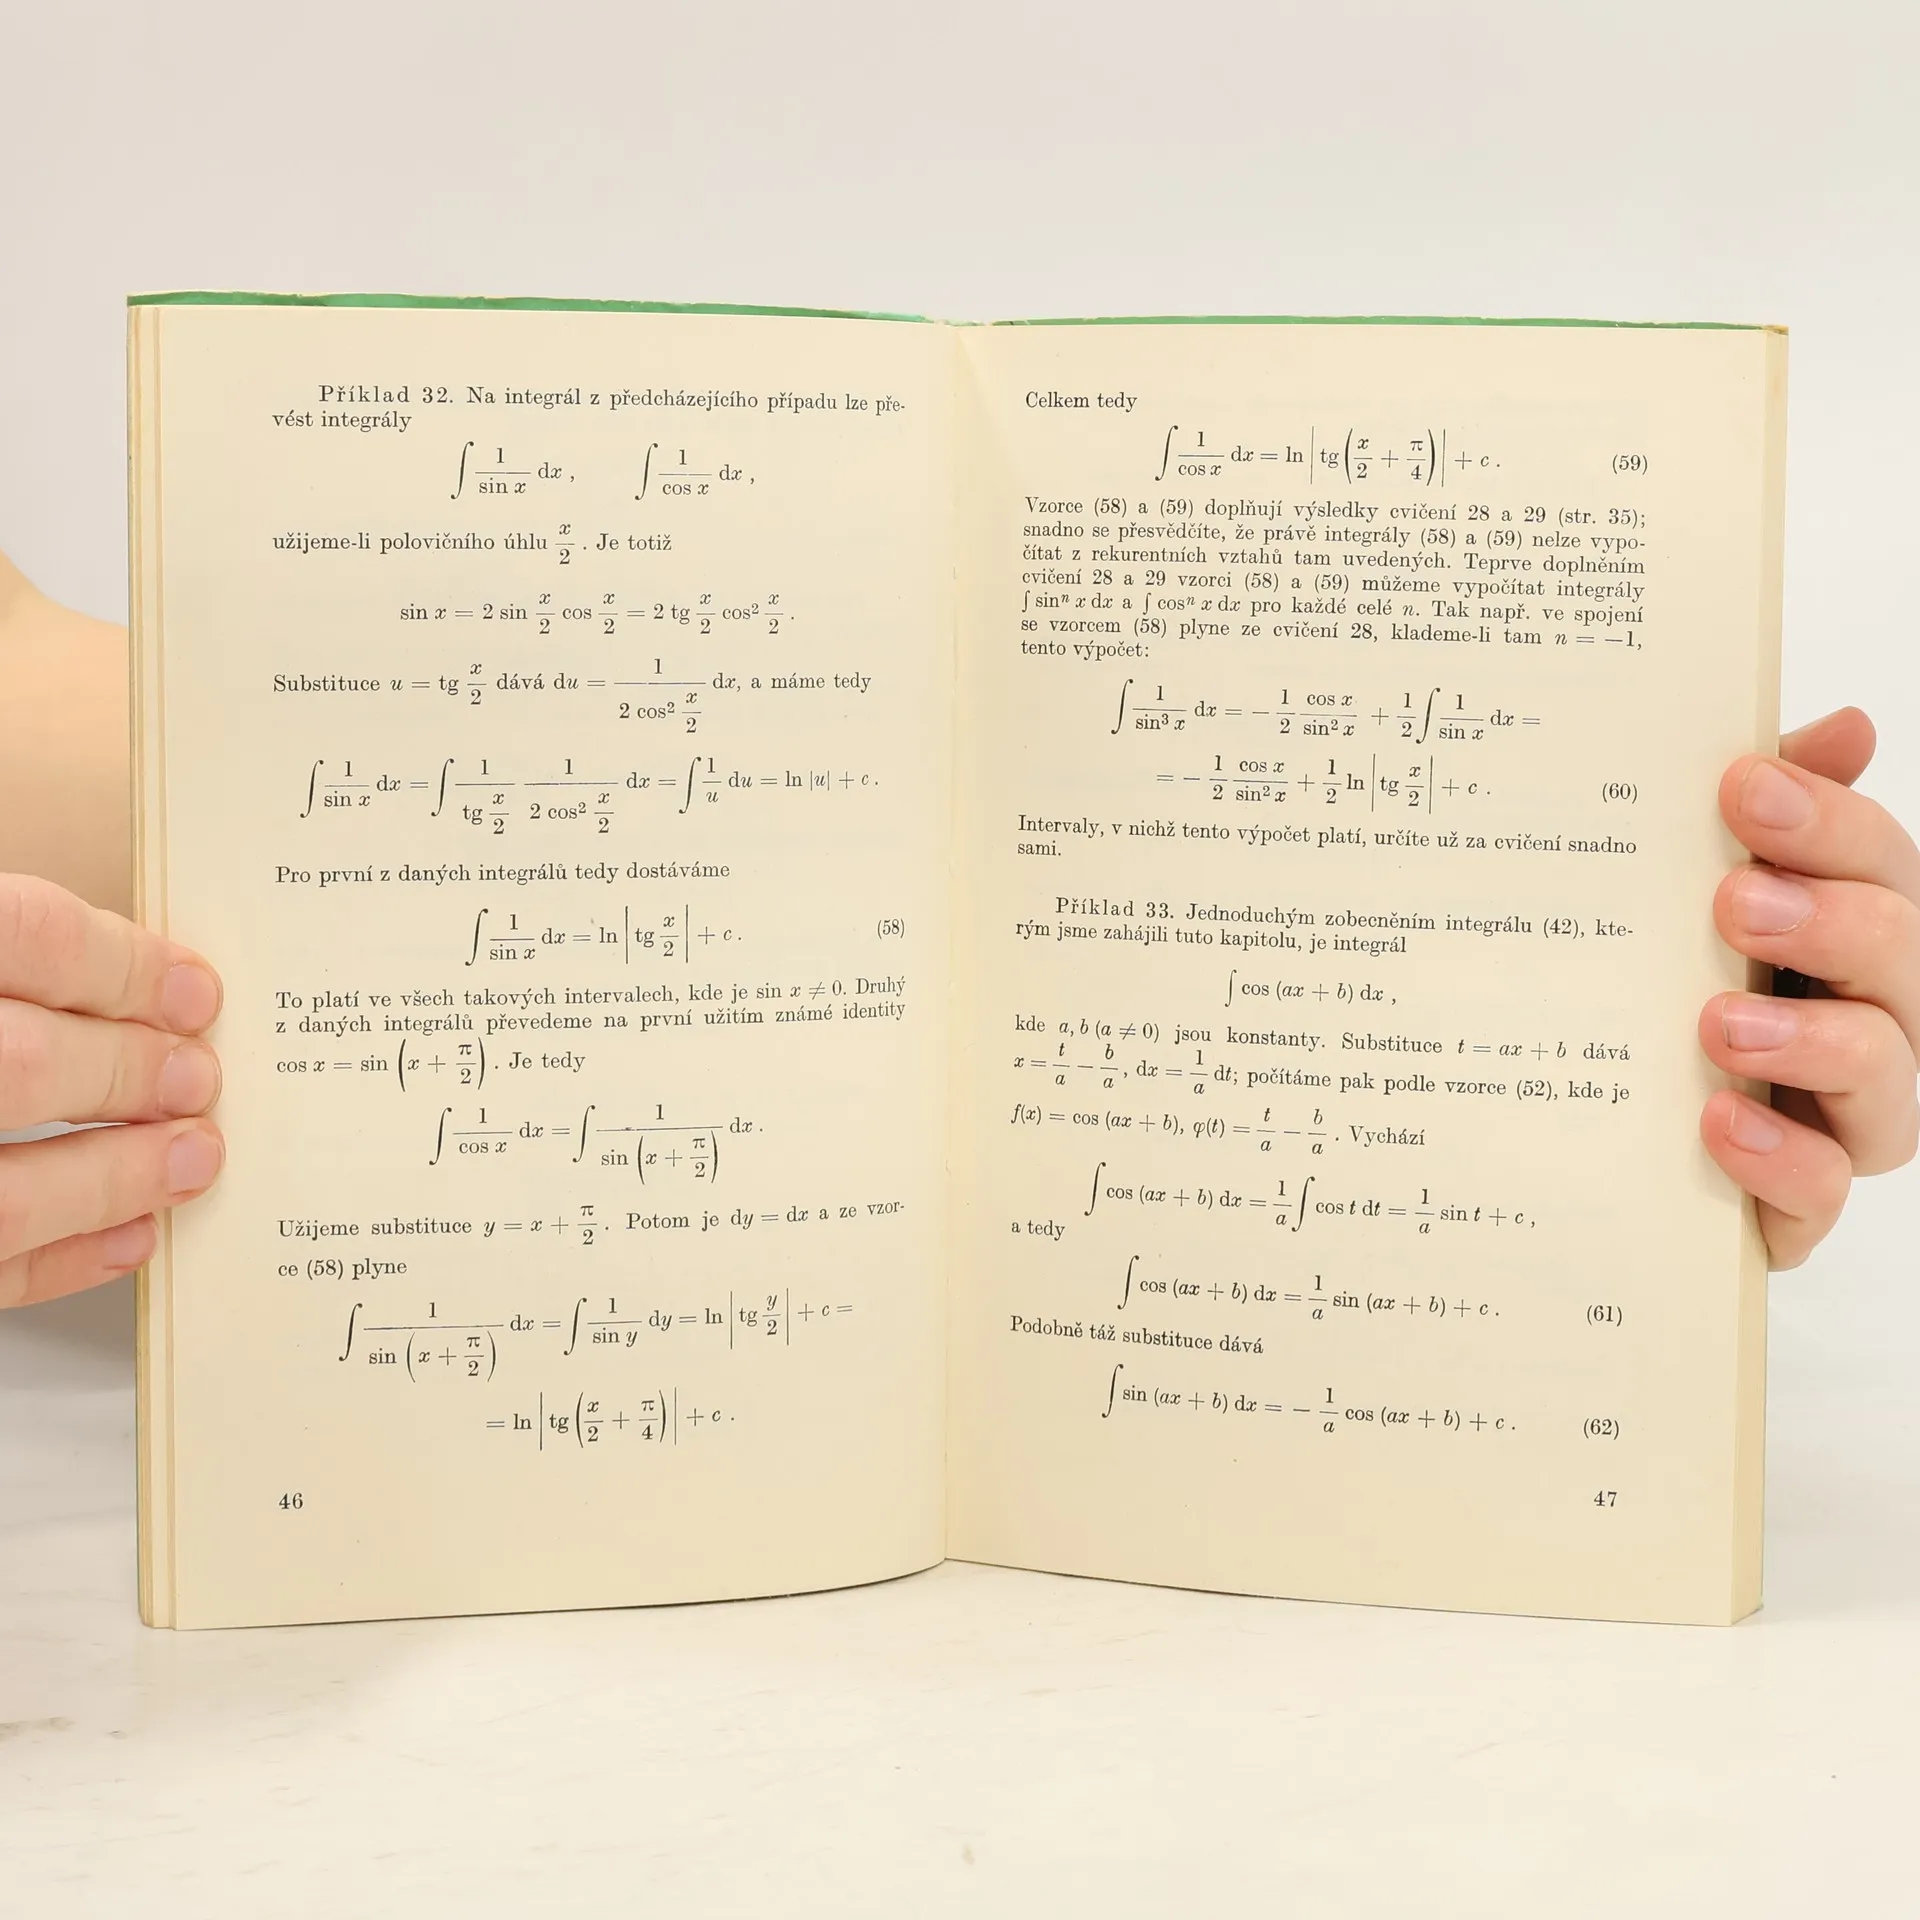 Příklad 32. Na integrál z předcházejícího případu lze pře-
vést integrály
∫ 1/sin x dx ,   ∫ 1/cos x dx ,
užijeme-li polovičního úhlu x/2 . Je totiž
sin x = 2 sin x/2 cos x/2 = 2 tg x/2 cos² x/2 .
Substituce u = tg x/2 dává du = 1/(2 cos² x/2) dx, a máme tedy
∫ 1/sin x dx = ∫ 1/(tg x/2) 1/(2 cos² x/2) dx = ∫ 1/u du = ln |u| + c .
Pro první z daných integrálů tedy dostáváme
∫ 1/sin x dx = ln |tg x/2| + c . (58)
To platí ve všech takových intervalech, kde je sin x ≠ 0. Druhý
z daných integrálů převedeme na první užitím známé identity
cos x = sin (x + π/2) . Je tedy
∫ 1/cos x dx = ∫ 1/sin (x + π/2) dx .
Užijeme substituce y = x + π/2 . Potom je dy = dx a ze vzor-
ce (58) plyne
∫ 1/sin (x + π/2) dx = ∫ 1/sin y dy = ln |tg y/2| + c =
= ln |tg (x/2 + π/4)| + c .
46
Celkem tedy
∫ 1/cos x dx = ln |tg (x/2 + π/4)| + c . (59)
Vzorce (58) a (59) doplňují výsledky cvičení 28 a 29 (str. 35);
snadno se přesvědčíte, že právě integrály (58) a (59) nelze vypo-
čítat z rekurentních vztahů tam uvedených. Teprve doplněním
cvičení 28 a 29 vzorci (58) a (59) můžeme vypočítat integrály
∫ sinⁿ x dx a ∫ cosⁿ x dx pro každé celé n. Tak např. ve spojení
se vzorcem (58) plyne ze cvičení 28, klademe-li tam n = —1,
tento výpočet:
∫ 1/sin³ x dx = − 1/2 cos x/sin² x + 1/2 ∫ 1/sin x dx =
= − 1/2 cos x/sin² x + 1/2 ln |tg x/2| + c . (60)
Intervaly, v nichž tento výpočet platí, určíte už za cvičení snadno
sami.
Příklad 33. Jednoduchým zobecněním integrálu (42), kte-
rým jsme zahájili tuto kapitolu, je integrál
∫ cos (ax + b) dx ,
kde a, b (a ≠ 0) jsou konstanty. Substituce t = ax + b dává
x = t/a − b/a , dx = 1/a dt; počítáme pak podle vzorce (52), kde je
f(x) = cos (ax + b), φ(t) = t/a − b/a . Vychází
∫ cos (ax + b) dx = 1/a ∫ cos t dt = 1/a sin t + c ,
a tedy
∫ cos (ax + b) dx = 1/a sin (ax + b) + c . (61)
Podobně táž substituce dává
∫ sin (ax + b) dx = − 1/a cos (ax + b) + c . (62)
47